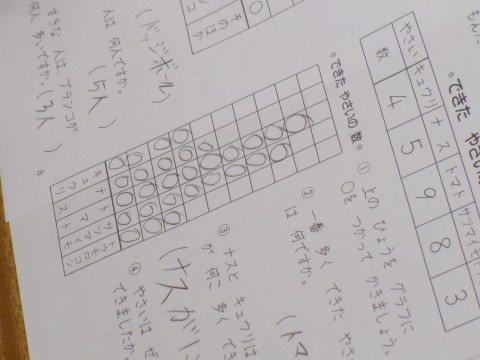 ・できた やさい
やさい キュウリ ナス トマト サツマイモ
数 4 5 9 8 3
①上の ひょうを グラフに
○を つかって かきましょう。
②一番 多く できた やさ
は 何ですか。
(トマ
③ナスと キュウリは
が 何こ 多く でき
(ナスが1
④やさいは ぜ
できましたか。
・できた やさいの 数・
キュウリ
ナス
トマト
サツマイモ
トウモロコシ
そのほか
(ドッジボール)
人は 何人ですか。
(5人)
すきな 人は、ブランコが
何人 多いですか。(3人)
8